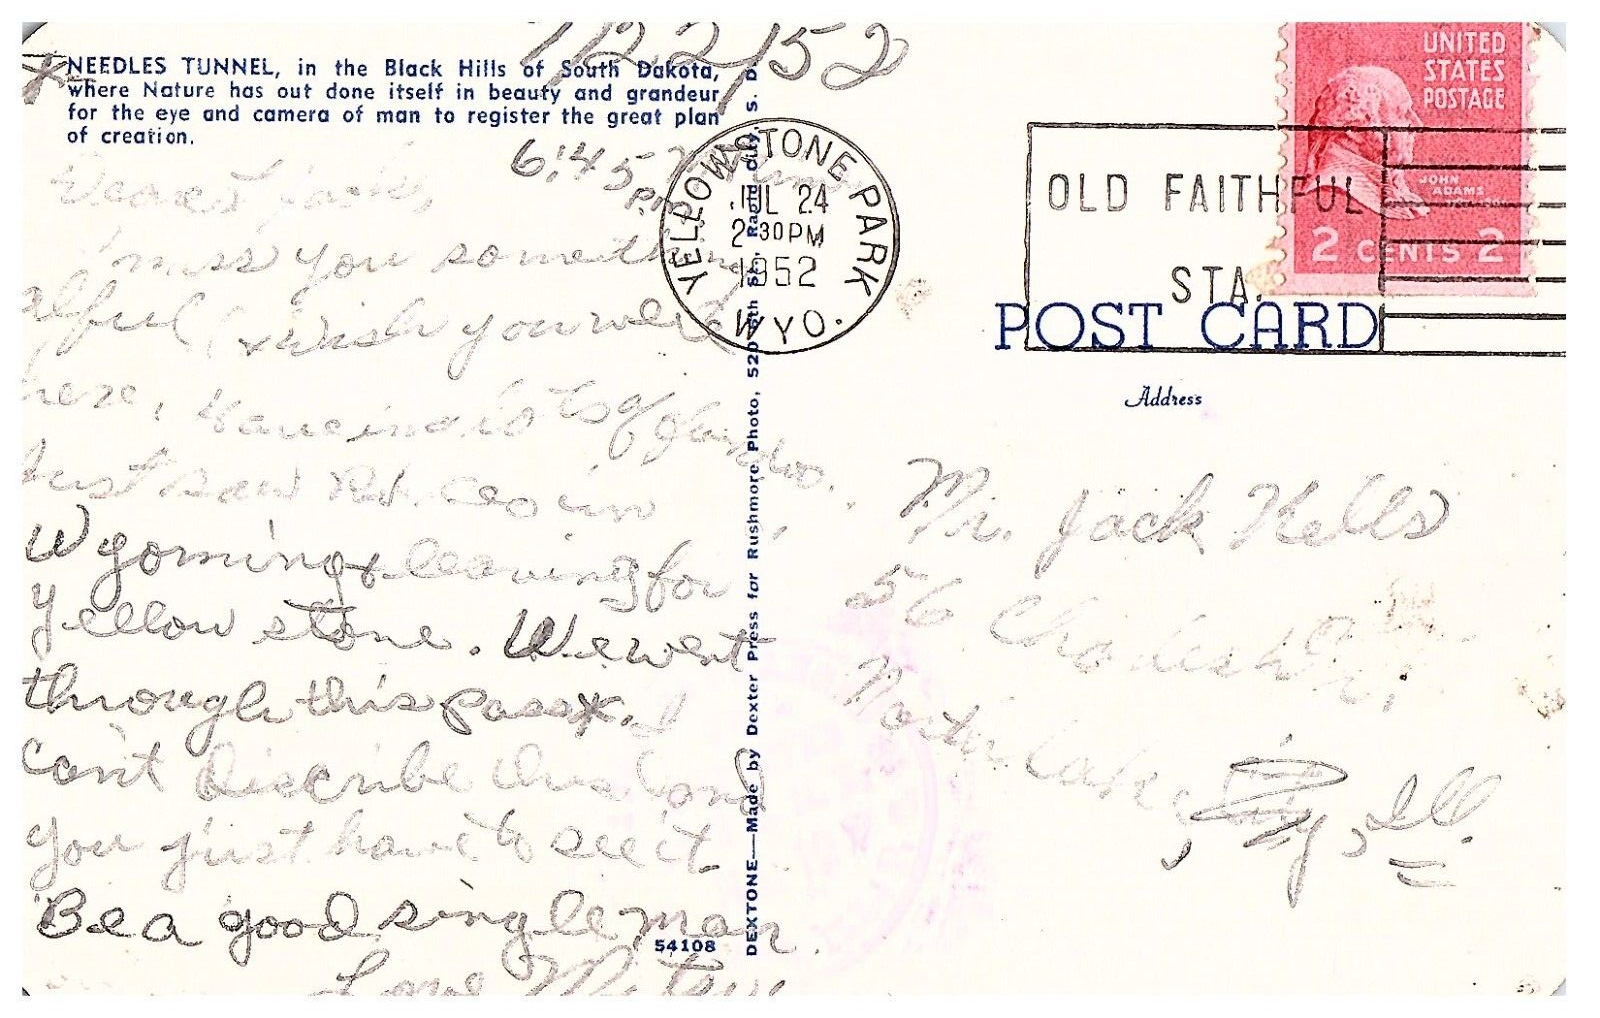 7/22/52
*NEEDLES TUNNEL, in the Black Hills of South Dakota,
where Nature has out done itself in beauty and grandeur
for the eye and camera of man to register the great plan
of creation.
6:45 P.M.
Dearest Jack,
I miss you something
alful (& wish you were
here.
Just saw in
Wyoming & leaving for
Yellow stone. We went
through this pass*. I
can't describe this land
you just have to see it
Be a good single man.
Love
54108
DEXTONE—Made by Dexter Press for Rushmore Photo, 520 6th St., Rapid City, S. D.
YELLOWSTONE PARK
JUL 24
2-30 PM
1952
WYO.
OLD FAITHFUL
STA.
UNITED
STATES
POSTAGE
JOHN
ADAMS
2 CENTS 2
POST CARD
Address
Mr. Jack Kells
56
, Ill.